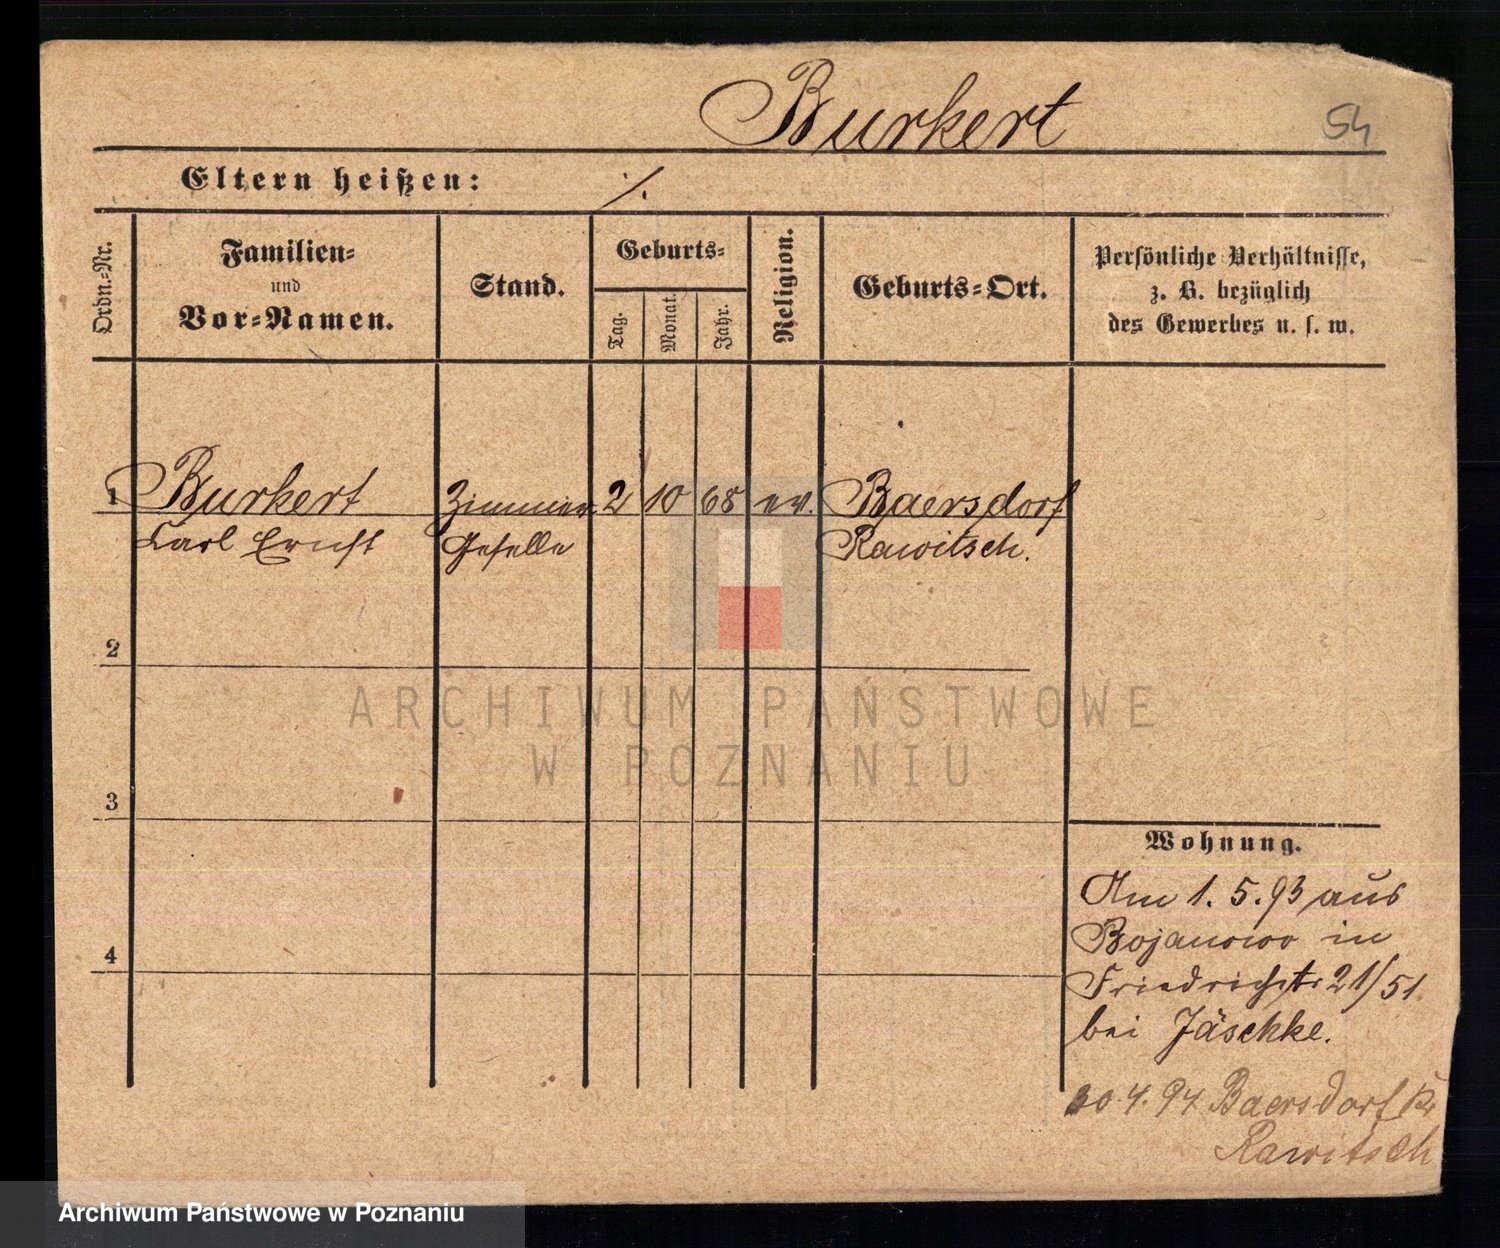 Burkert
54
Eltern heißen: ./.
Ordn.-Nr.
Familien-
und
Vor-Namen.
Stand.
Geburts-
Tag.
Monat.
Jahr.
Religion.
Geburts-Ort.
Persönliche Verhältnisse,
z. B. bezüglich
des Gewerbes u. s. w.
1 Burkert Zimmer 2 10 68 ev. Baersdorf
Carl Ernst Geselle Rawitsch.
2
3
4
Wohnung.
Am 1. 5. 93 aus
Bojanowo in
Friedrichstr 21/51
bei Jäschke.
30.4.94 Baersdorf Kr
Rawitsch
ARCHIWUM PAŃSTWOWE
W POZNANIU
Archiwum Państwowe w Poznaniu